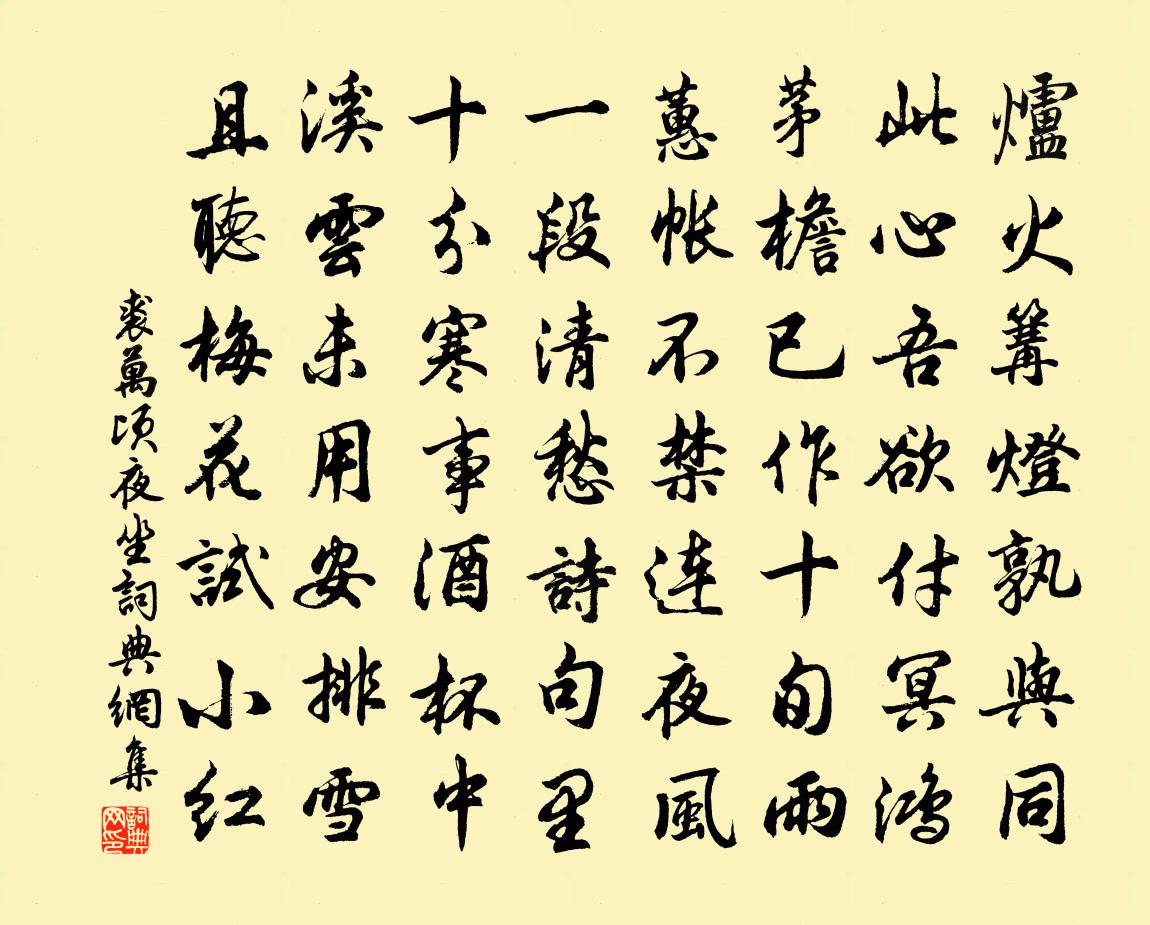 爐火篝燈孰與同
此心吾欲付冥鴻
茅檐已作十旬雨
蕙帳不禁連夜風
一段清愁詩句里
十分寒事酒杯中
溪雲未用安排雪
且聽梅花試小紅
裘萬頃夜坐詞典網集
詞典网印